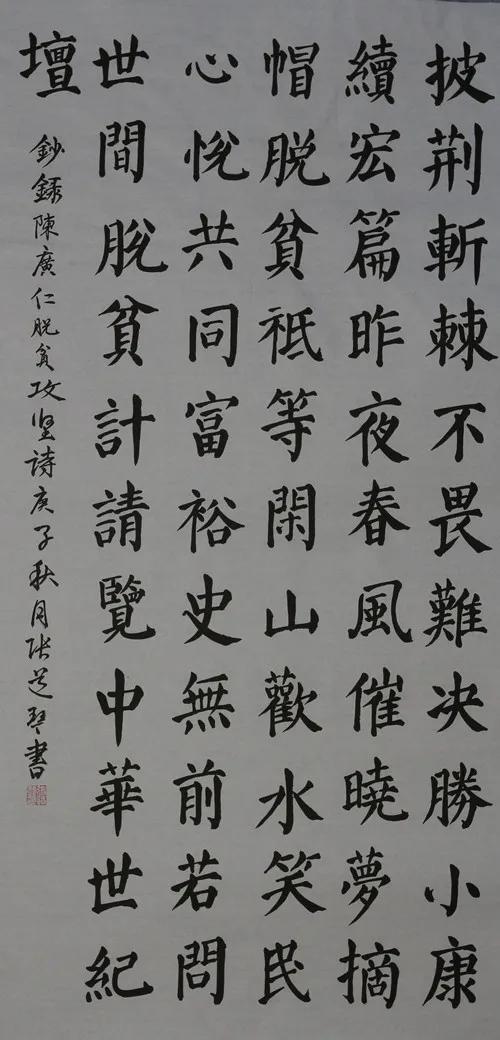 披荆斬棘不畏難決勝小康
續宏篇昨夜春風催曉夢摘
帽脱貧祗等閑山歡水笑民
心悦共同富裕史無前若問
世間脱貧計請覽中華世紀
壇
鈔録陳廣仁脱貧攻堅詩庚子秋月張道琴書